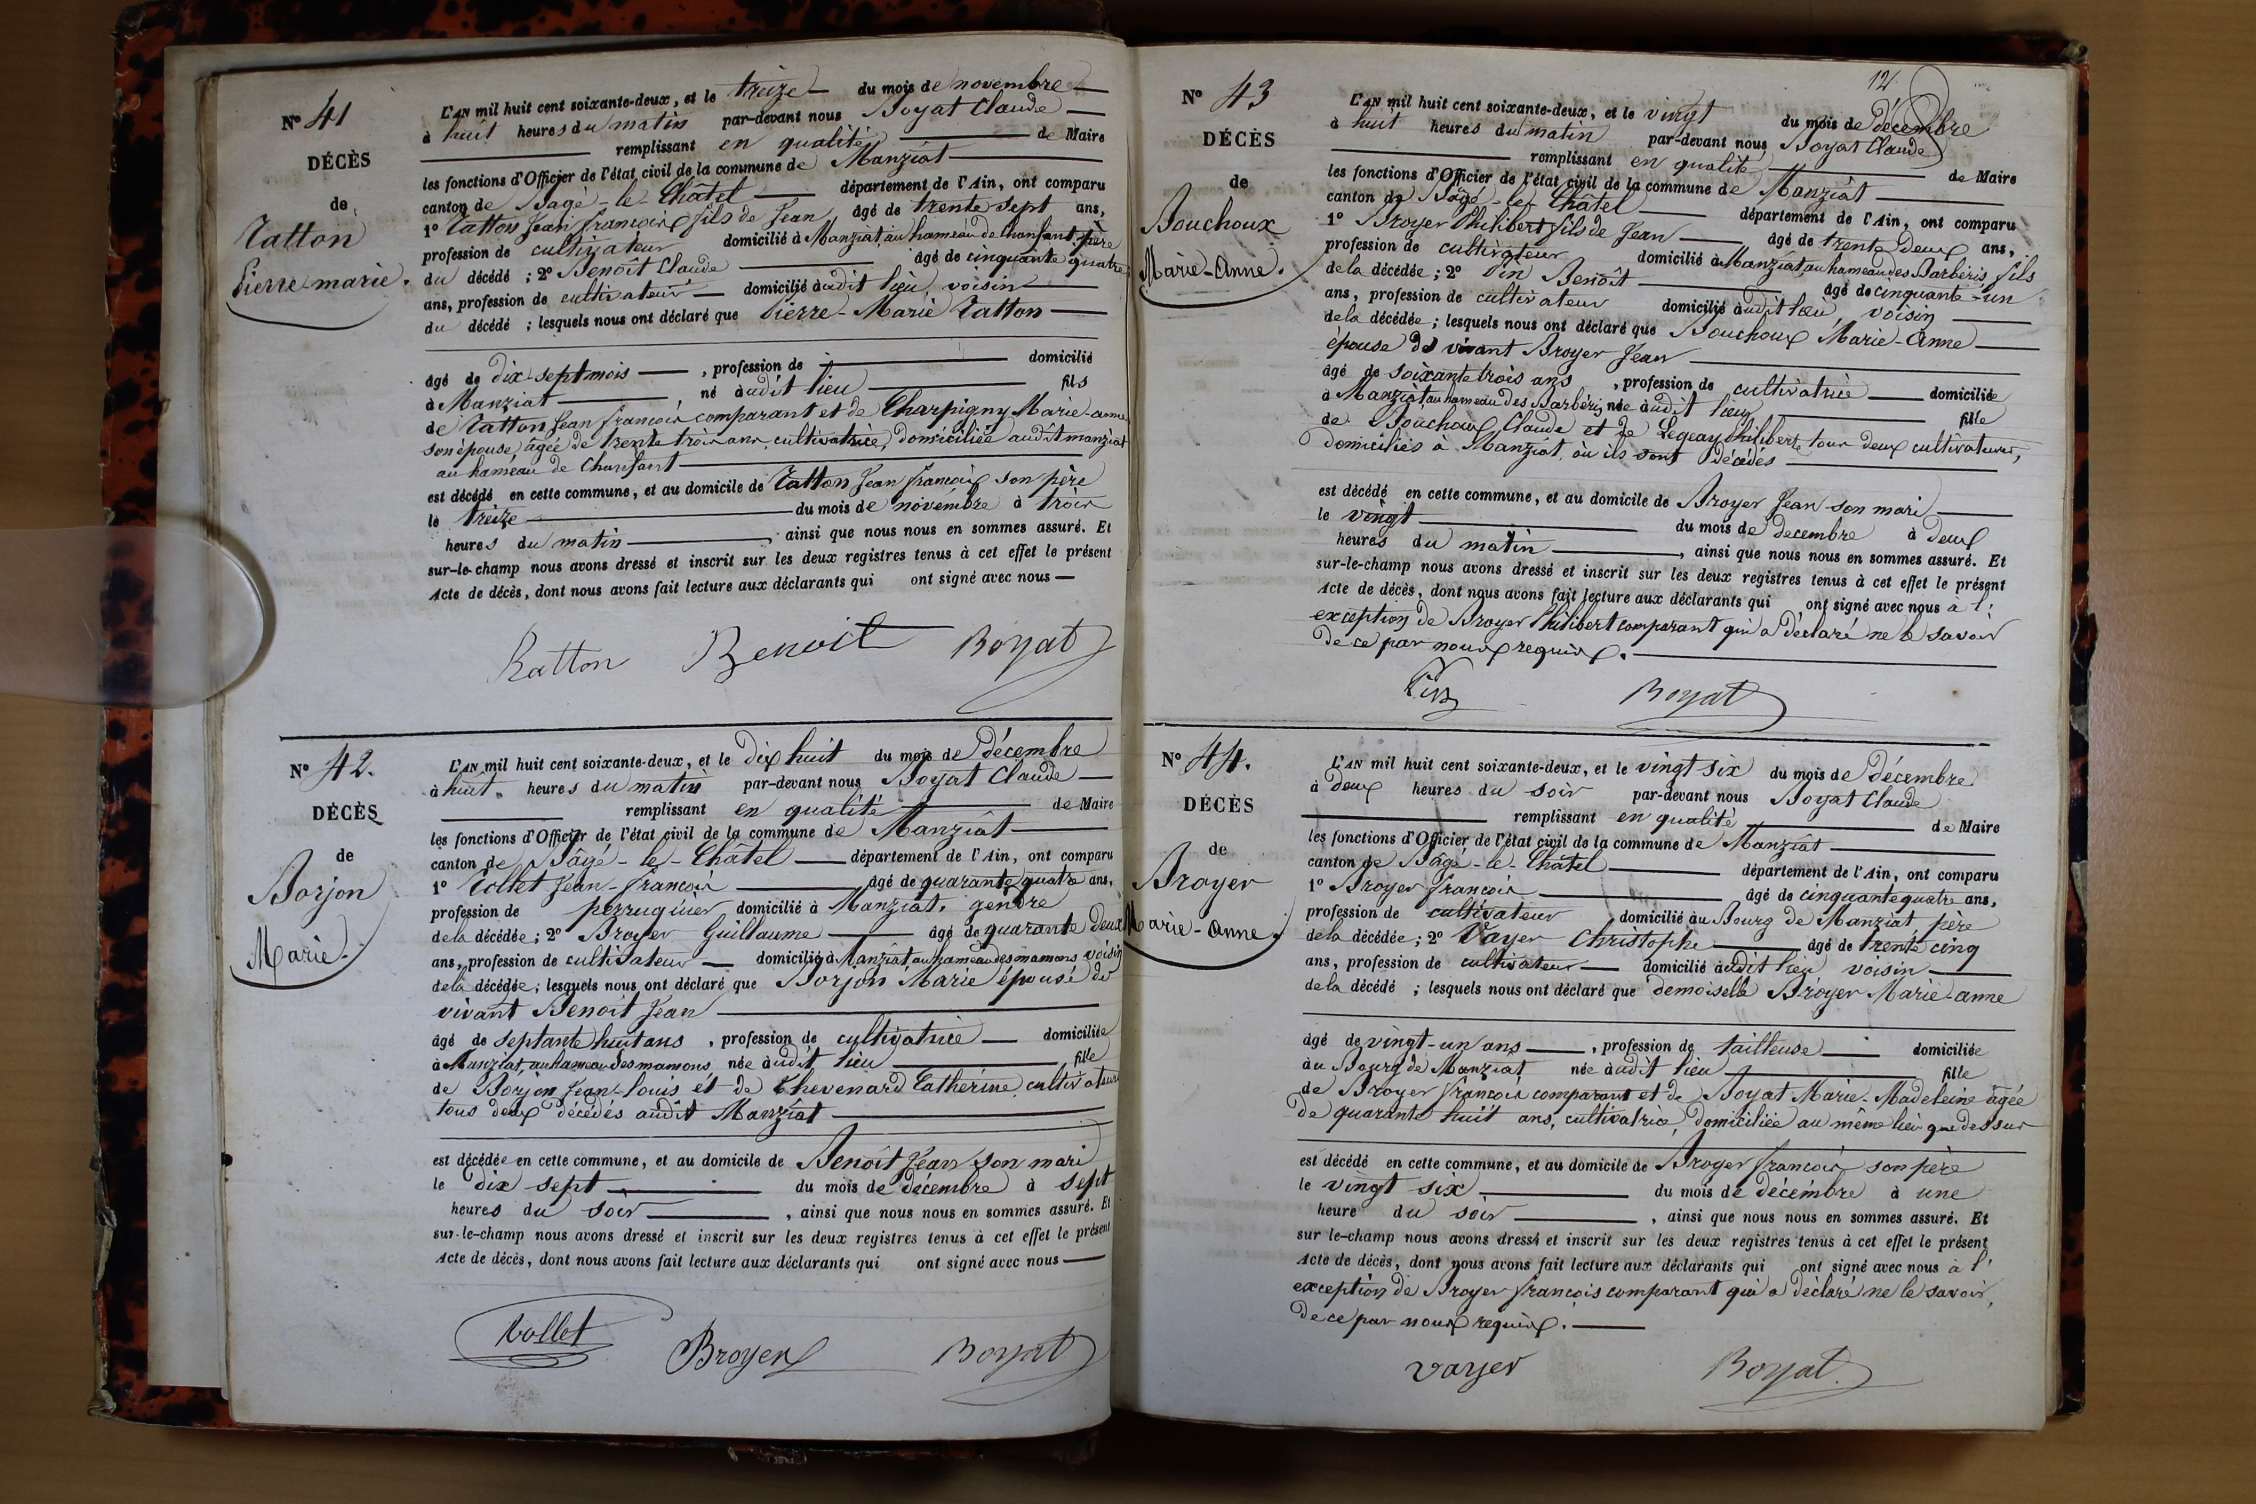 N° 41
DÉCÈS
de
Catton
Pierre marie.
L'AN mil huit cent soixante-deux, et le treize du mois de novembre
à huit heures du matin par-devant nous Boyat Claude
remplissant en qualité de Maire
les fonctions d'Officier de l'état civil de la commune de Manziat
canton de Bâgé-le-Châtel département de l'Ain, ont comparu
1° Catton Jean françois fils de Jean âgé de trente sept ans,
profession de cultivateur domicilié à Manziat, au hameau de Chanfant, père
du décédé ; 2° Benoît Claude âgé de cinquante quatre
ans, profession de cultivateur domicilié audit lieu, voisin
du décédé ; lesquels nous ont déclaré que Pierre-Marie Catton
âgé de dix-sept mois , profession de domicilié
à Manziat né audit lieu fils
de Catton Jean françois comparant et de Charpigny Marie-anne
son épouse, âgée de trente trois ans, cultivatrice, domiciliée audit manziat
au hameau de Chanfant
est décédé en cette commune, et au domicile de Catton Jean françois son père
le treize du mois de novembre à trois
heures du matin , ainsi que nous nous en sommes assuré. Et
sur-le-champ nous avons dressé et inscrit sur les deux registres tenus à cet effet le présent
Acte de décès, dont nous avons fait lecture aux déclarants qui ont signé avec nous
Catton Benoit Boyat
N° 42.
DÉCÈS
de
Borjon
Marie.
L'AN mil huit cent soixante-deux, et le dix huit du mois de décembre
à huit heures du matin par-devant nous Boyat Claude
remplissant en qualité de Maire
les fonctions d'Officier de l'état civil de la commune de Manziat
canton de Bâgé-le-Châtel département de l'Ain, ont comparu
1° Collet Jean-françois âgé de quarante quatre ans,
profession de perruquier domicilié à Manziat, gendre
de la décédée ; 2° Broyer Guillaume âgé de quarante deux
ans, profession de cultivateur domicilié à Manziat au hameau des mamons voisin
de la décédée ; lesquels nous ont déclaré que Borjon Marie épouse de
vivant Benoit Jean
âgé de septante huit ans , profession de cultivatrice domiciliée
à Manziat, au hameau des mamons née audit lieu fille
de Borjon Jean-louis et de Chevenard Catherine, cultivateurs
tous deux décédés audit Manziat
est décédée en cette commune, et au domicile de Benoit Jean son mari
le dix sept du mois de décembre à sept
heures du soir , ainsi que nous nous en sommes assuré. Et
sur-le-champ nous avons dressé et inscrit sur les deux registres tenus à cet effet le présent
Acte de décès, dont nous avons fait lecture aux déclarants qui ont signé avec nous
Collet Broyer Boyat
12
N° 43
DÉCÈS
de
Bouchoux
Marie-Anne.
L'AN mil huit cent soixante-deux, et le vingt du mois de décembre
à huit heures du matin par-devant nous Boyat Claude
remplissant en qualité de Maire
les fonctions d'Officier de l'état civil de la commune de Manziat
canton de Bâgé-le-Châtel département de l'Ain, ont comparu
1° Broyer Philibert fils de Jean âgé de trente deux ans,
profession de cultivateur domicilié à Manziat au hameau des Barbéris, fils
de la décédée ; 2° Pin Benoît âgé de cinquante-un
ans, profession de cultivateur domicilié audit lieu, voisin
de la décédée ; lesquels nous ont déclaré que Bouchoux Marie-Anne
épouse de vivant Broyer Jean
âgé de soixante trois ans , profession de cultivatrice domiciliée
à Manziat au hameau des Barbéris, née audit lieu fille
de Bouchoux Claude et de Legeay Philiberte tous deux cultivateurs,
domiciliés à Manziat où ils sont décédés
est décédé en cette commune, et au domicile de Broyer Jean son mari
le vingt du mois de decembre à deux
heures du matin , ainsi que nous nous en sommes assuré. Et
sur-le-champ nous avons dressé et inscrit sur les deux registres tenus à cet effet le présent
Acte de décès, dont nous avons fait lecture aux déclarants qui ont signé avec nous à l'
exception de Broyer Philibert comparant qui a déclaré ne le savoir
de ce par nous requis.
Pin Boyat
N° 44.
DÉCÈS
de
Broyer
Marie-Anne.
L'AN mil huit cent soixante-deux, et le vingt six du mois de décembre
à deux heures du soir par-devant nous Boyat Claude
remplissant en qualité de Maire
les fonctions d'Officier de l'état civil de la commune de Manziat
canton de Bâgé-le-Châtel département de l'Ain, ont comparu
1° Broyer françois âgé de cinquante quatre ans,
profession de cultivateur domicilié au Bourg de Manziat, père
de la décédée ; 2° Vayer Christophe âgé de trente cinq
ans, profession de cultivateur domicilié audit lieu voisin
de la décédé ; lesquels nous ont déclaré que demoiselle Broyer Marie-anne
âgé de vingt-un ans , profession de tailleuse domiciliée
au Bourg de Manziat née audit lieu fille
de Broyer françois comparant et de Boyat Marie-Madeleine âgée
de quarante huit ans, cultivatrice, domiciliée au même lieu que dessus
est décédé en cette commune, et au domicile de Broyer françois son père
le vingt six du mois de décembre à une
heure du soir , ainsi que nous nous en sommes assuré. Et
sur le-champ nous avons dressé et inscrit sur les deux registres tenus à cet effet le présent
Acte de décès, dont nous avons fait lecture aux déclarants qui ont signé avec nous à l'
exception de Broyer françois comparant qui a déclaré ne le savoir,
de ce par nous requis.
vayer Boyat